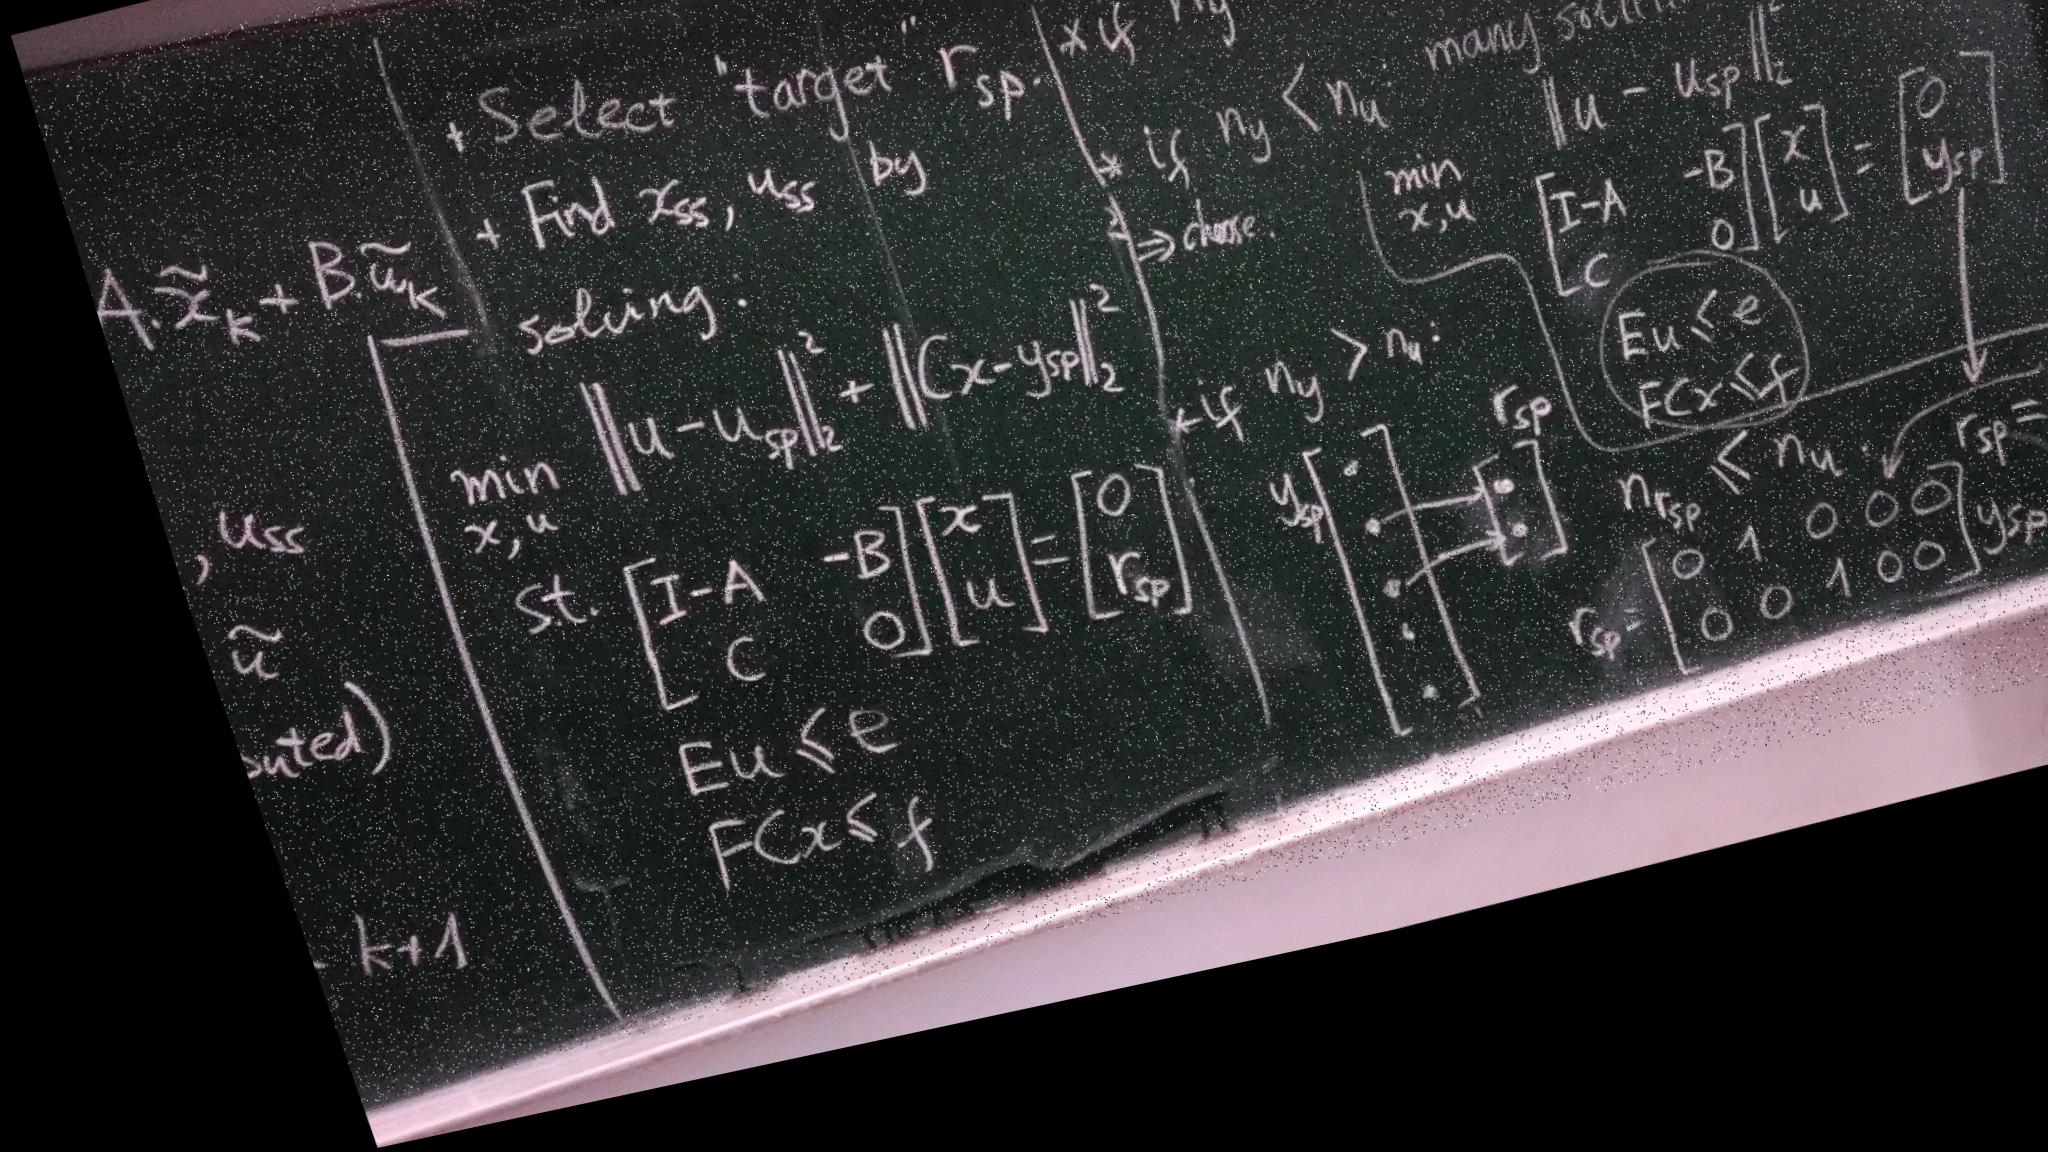 A.x̃ₖ + B.ũₖ
, uss
ũ
k+1
+ Select "target" rsp.
+ Find xss, uss by
solving.
min x,u ‖u - usp‖₂² + ‖Cx - ysp‖₂²
st. [I-A -B; C 0] [x; u] = [0; rsp]
Eu ≤ e
FCx ≤ f
* if ny
* if ny < nu: many
⇒ choose.
min x,u ‖u - usp‖₂²
[I-A -B; C 0] [x; u] = [0; ysp]
Eu ≤ e
FCx ≤ f
* if ny > nu:
ysp
rsp
nrsp ≤ nu.
rsp =
rsp = [0 1 0 0 0; 0 0 1 0 0] ysp